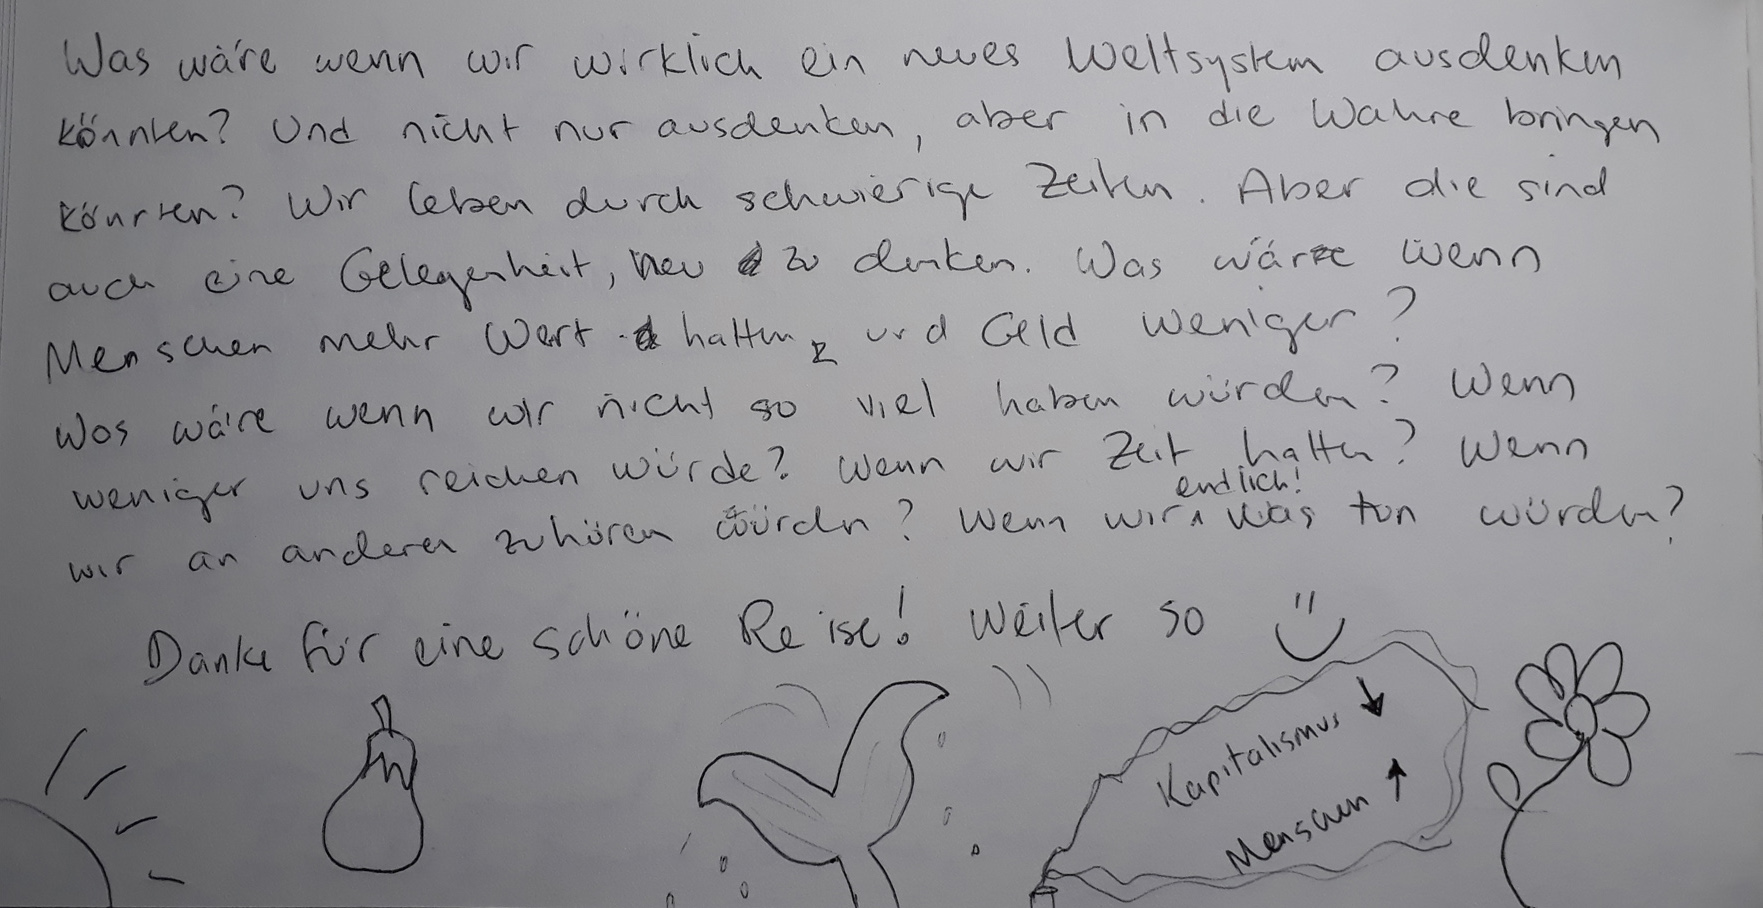 Was wäre wenn wir wirklich ein neues Weltsystem ausdenken
könnten? Und nicht nur ausdenken, aber in die Wahre bringen
könnten? Wir leben durch schwierige Zeiten. Aber die sind
auch eine Gelegenheit, neu zu denken. Was wäre wenn
Menschen mehr Wert hatten, und Geld weniger?
Was wäre wenn wir nicht so viel haben würden? Wenn
weniger uns reichen würde? Wenn wir Zeit hatten? Wenn
endlich!
wir an anderen zuhören würden? Wenn wir was tun würden?
Danke für eine schöne Reise! Weiter so
Kapitalismus ↓
Menschen ↑